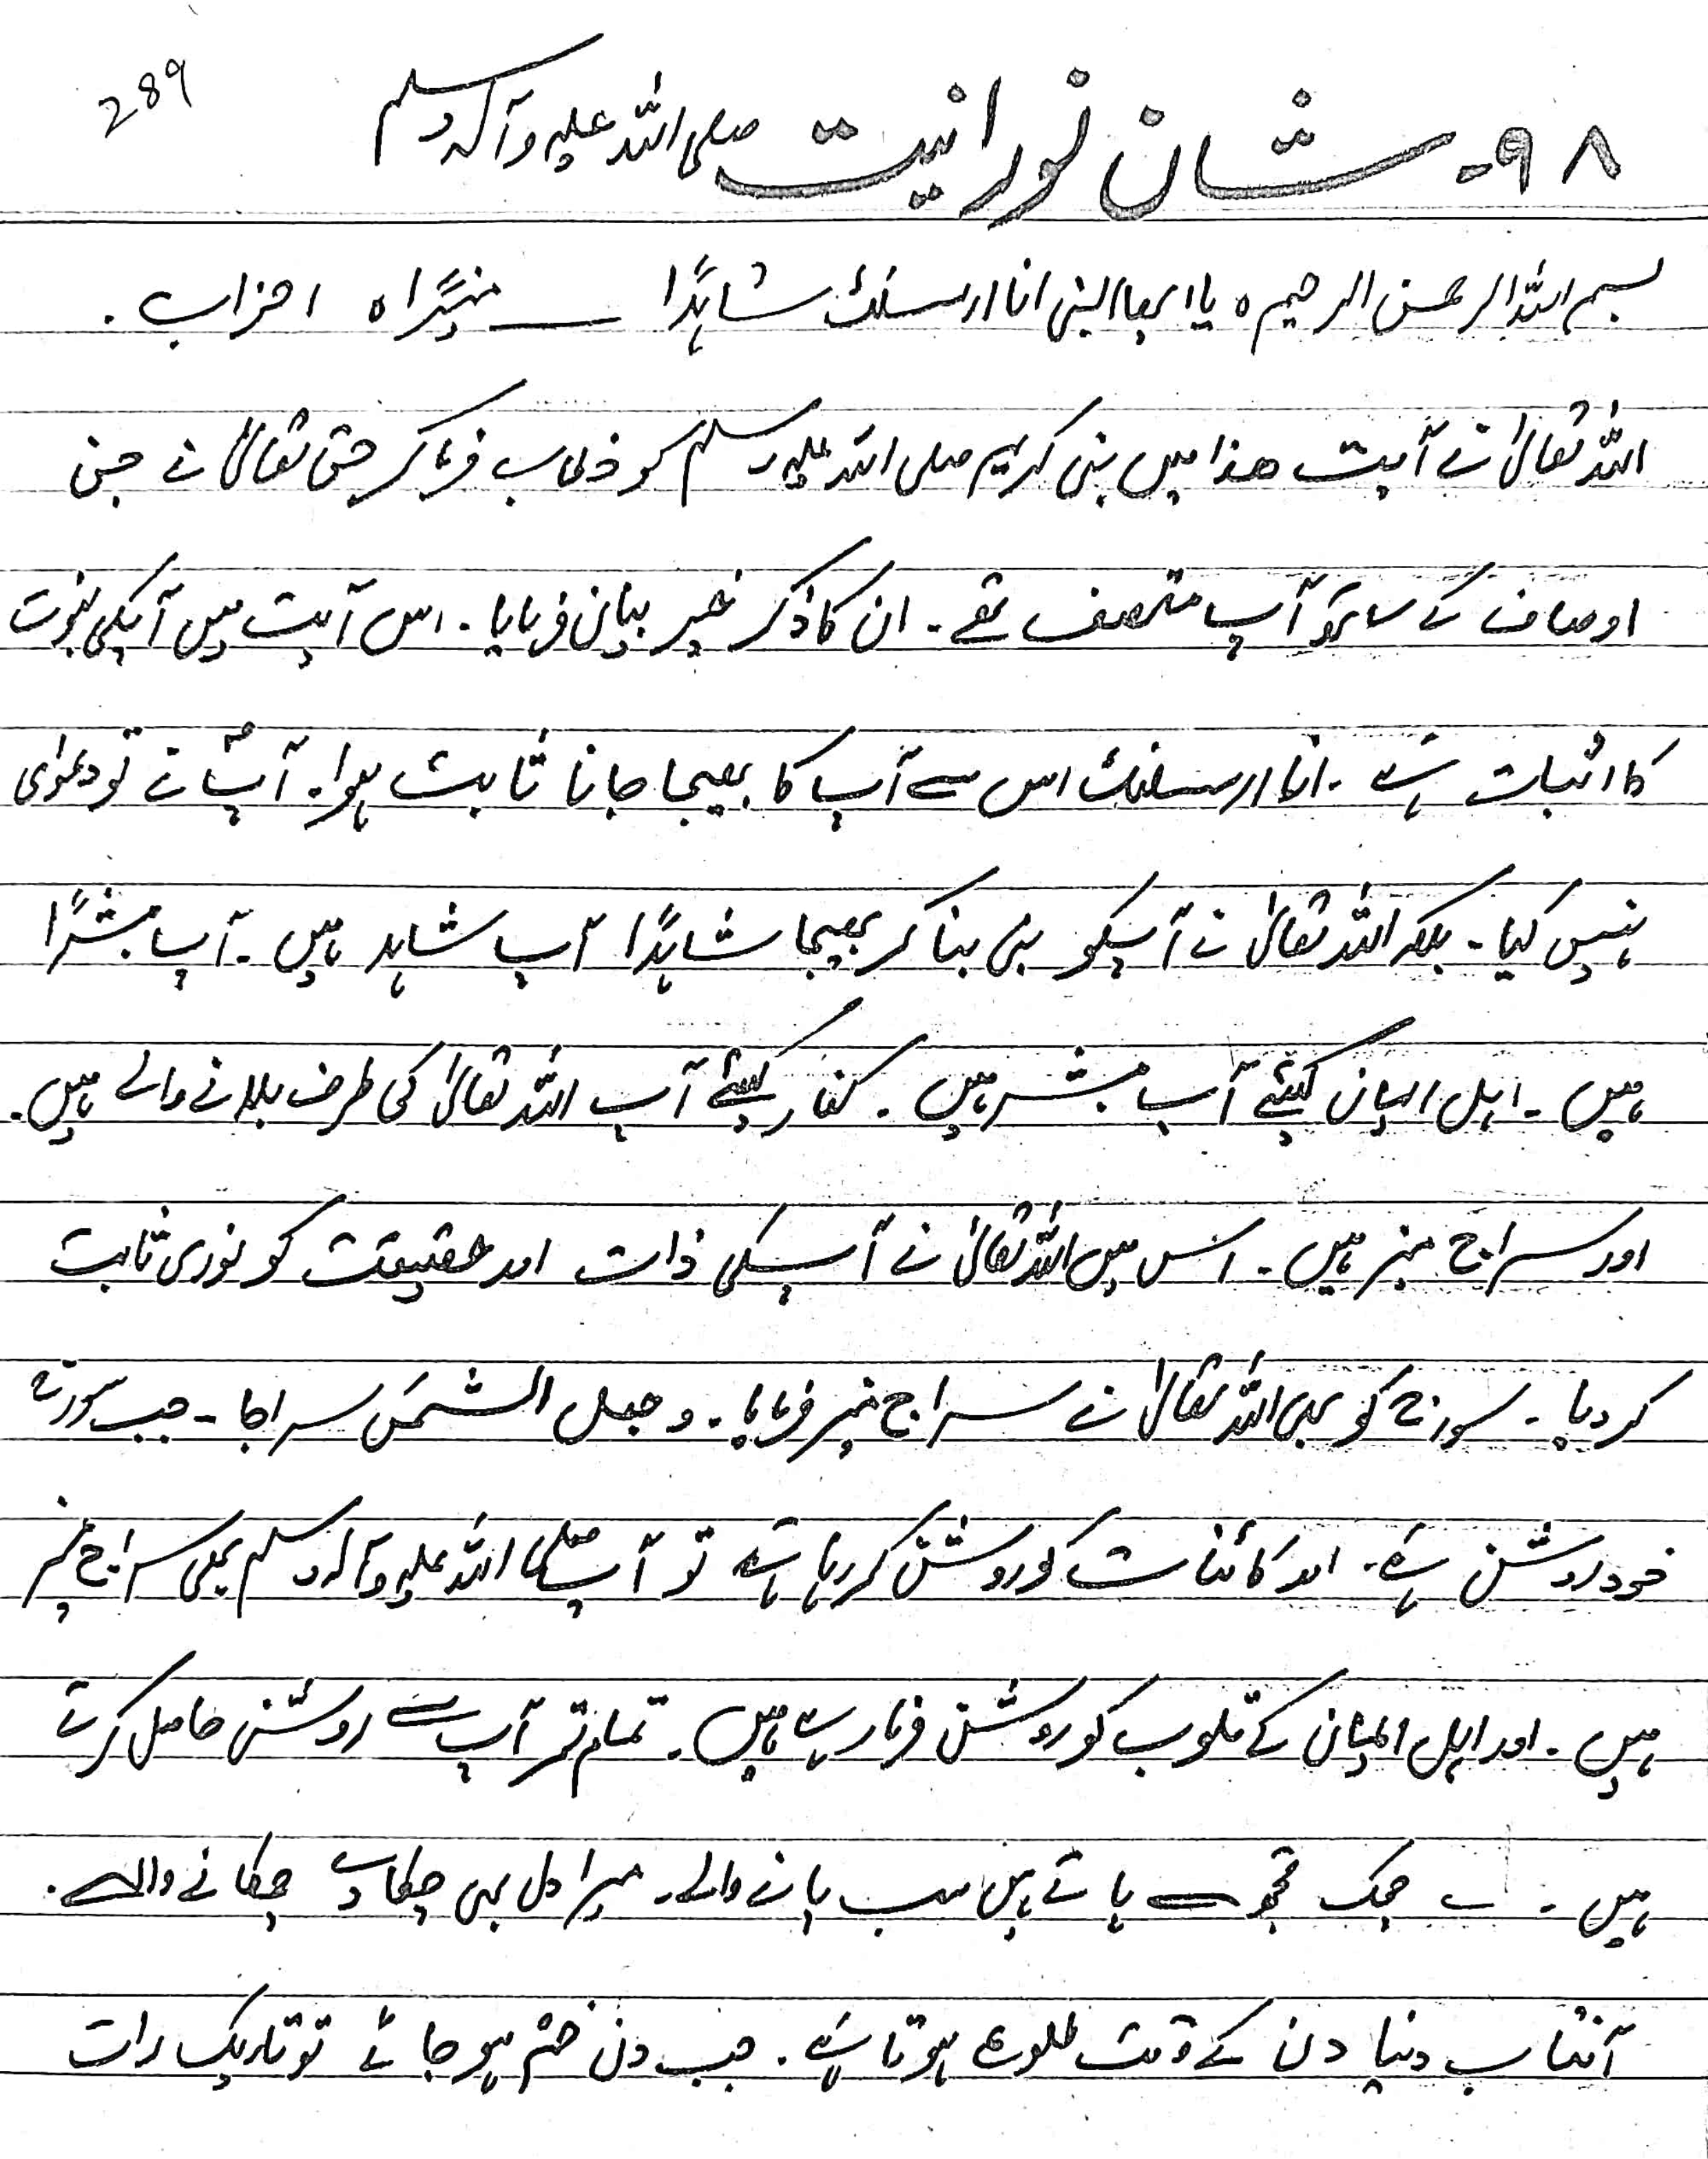 289
۹۸- شان نورانیت صلی اللہ علیہ وآلہ وسلم
بسم اللہ الرحمن الرحیم ہ یا ایھا النبی انا ارسلنک شاہدًا ــــ منیرًا ہ احزاب ۔
اللہ تعالیٰ نے آیت ھذا میں نبی کریم صلی اللہ علیہ وسلم کو خطاب فرما کر حق تعالیٰ نے جن
اوصاف کے ساتھ آپ متصف تھے ۔ ان کا ذکر خیر بیان فرمایا ۔ اس آیت میں آپکی نبوت
کا اثبات ہے ۔ انا ارسلنک اس سے آپ کا بھیجا جانا ثابت ہوا ۔ آپؐ نے تو دعوٰی
نہیں کیا ۔ بلکہ اللہ تعالیٰ نے آپکو نبی بنا کر بھیجا شاہدًا آپ شاہد ہیں ۔ آپ مبشرًا
ہیں ۔ اہل ایمان کیلئے آپ مبشر ہیں ۔ کفار کیلئے آپ اللہ تعالیٰ کی طرف بلانے والے ہیں ۔
اور سراج منیر ہیں ۔ اس میں اللہ تعالیٰ نے آپکی ذات اور حقیقت کو نوری ثابت
کر دیا ۔ سورج کو بھی اللہ تعالیٰ نے سراج منیر فرمایا ۔ وجعل الشمَس سراجا ۔ جب سورج
خود روشن ہے ۔ اور کائنات کو روشن کر رہا ہے تو آپ صلی اللہ علیہ وآلہ وسلم بھی سراج منیر
ہیں ۔ اور اہل ایمان کے قلوب کو روشن فرما رہے ہیں ۔ تمام تر آپ سے روشنی حاصل کرتے
ہیں ۔ ؎ چمک تجھ سے پاتے ہیں سب پانے والے ۔ میرا دل بھی چمکا دے چمکانے والے ۔
آفتاب دنیا دن کے وقت طلوع ہوتا ہے ۔ جب دن ختم ہو جائے تو تاریک رات